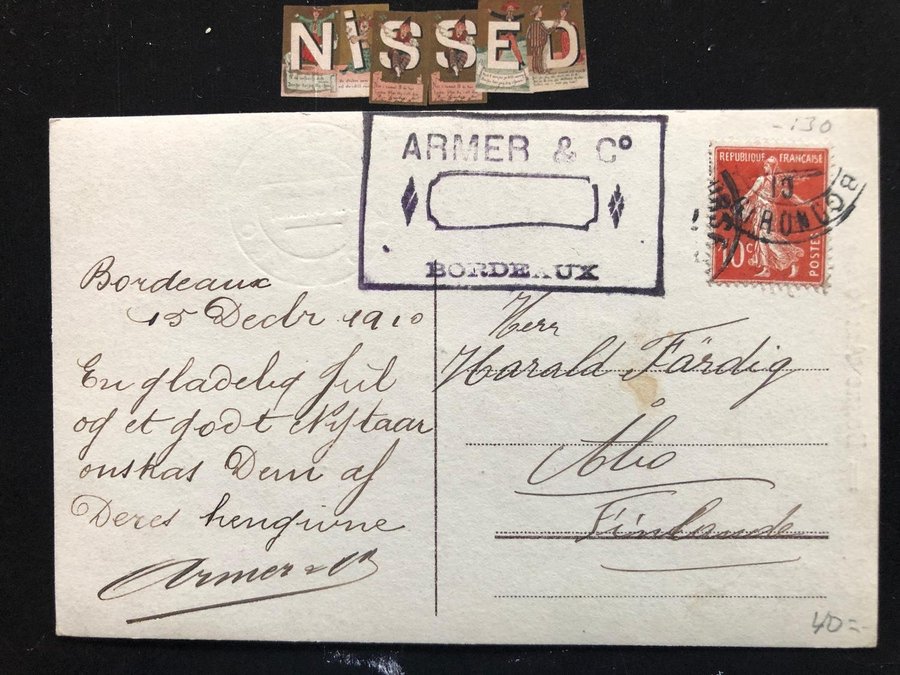 NiSSED
-130
ARMER & Cº
BORDEAUX
REPUBLIQUE FRANÇAISE
10 c
POSTES
Bordeaux
15 Decbr 1910
En gladelig Jul
og et godt Nytaar
onskas Dem af
Deres hengivne
Armer & Co
Herr
Harald Färdig
Åbo
Finlande
40=-